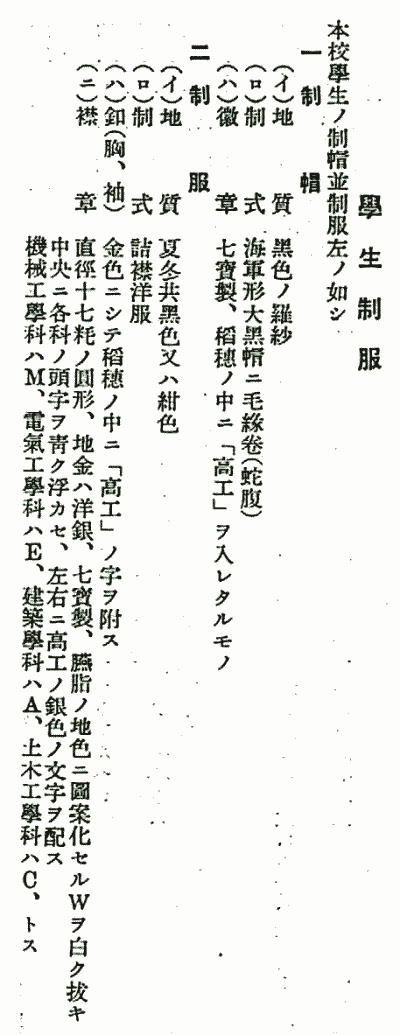 學生制服
本校學生ノ制帽並制服左ノ如シ
一制帽
(イ)地質 黑色ノ羅紗
(ロ)制式 海軍形大黑帽ニ毛緣卷(蛇腹)
(ハ)徽章 七寶製、稻穗ノ中ニ「高工」ヲ入レタルモノ
二制服
(イ)地質 夏冬共黑色又ハ紺色
(ロ)制式 詰襟洋服
(ハ)釦(胸、袖) 金色ニシテ稻穗ノ中ニ「高工」ノ字ヲ附ス
(ニ)襟章 直徑十七粍ノ圓形、地金ハ洋銀、七寶製、臙脂ノ地色ニ圖案化セルWヲ白ク拔キ
中央ニ各科ノ頭字ヲ靑ク浮カセ、左右ニ高工ノ銀色ノ文字ヲ配ス
機械工學科ハM、電氣工學科ハE、建築學科ハA、土木工學科ハC、トス